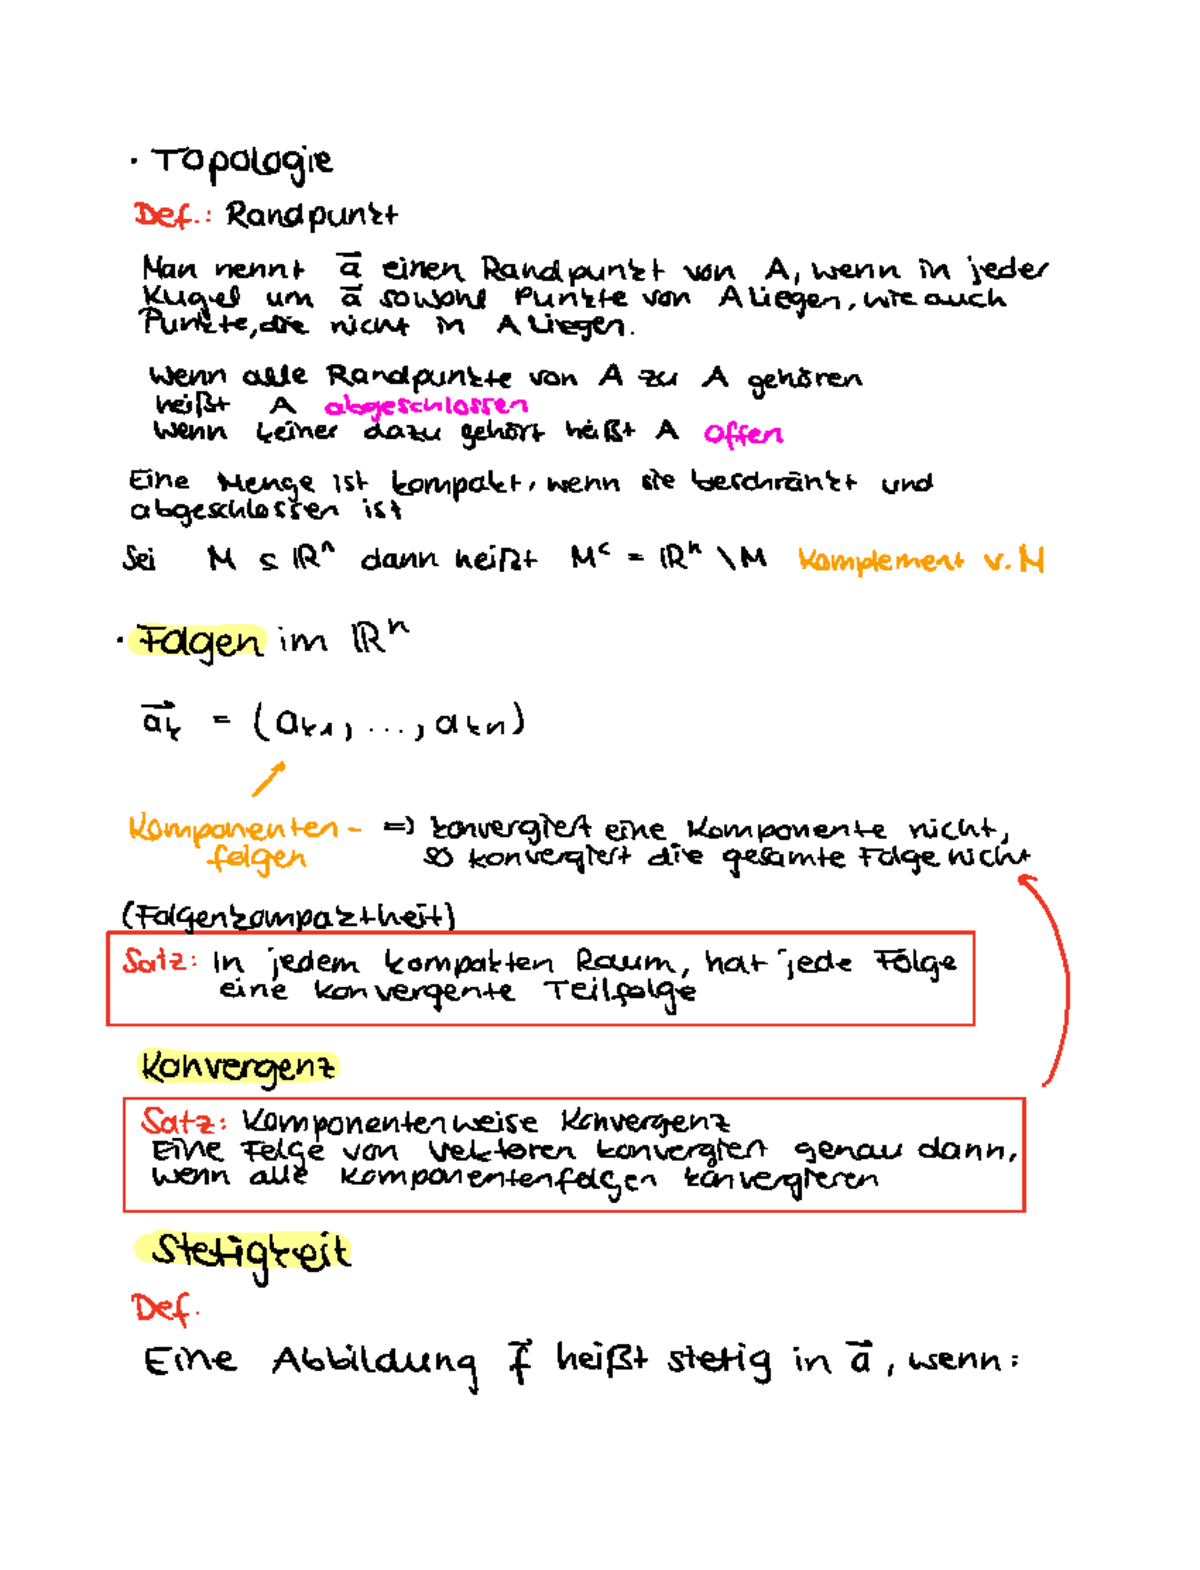 · Topologie
Def.: Randpunkt
Man nennt a⃗ einen Randpunkt von A, wenn in jeder
Kugel um a⃗ sowohl Punkte von A liegen, wie auch
Punkte, die nicht in A liegen.
Wenn alle Randpunkte von A zu A gehören
heißt A abgeschlossen
Wenn keiner dazu gehört heißt A offen
Eine Menge ist kompakt, wenn sie beschränkt und
abgeschlossen ist
Sei M ⊆ ℝⁿ dann heißt Mᶜ = ℝⁿ \ M Komplement v. M
· Folgen im ℝⁿ
a⃗ₖ = (aₖ₁, ..., aₖₙ)
Komponenten- => konvergiert eine Komponente nicht,
folgen so konvergiert die gesamte Folge nicht
(Folgenkompaktheit)
Satz: In jedem kompakten Raum, hat jede Folge
eine konvergente Teilfolge
Konvergenz
Satz: Komponentenweise Konvergenz
Eine Folge von Vektoren konvergiert genau dann,
wenn alle Komponentenfolgen konvergieren
Stetigkeit
Def.
Eine Abbildung f⃗ heißt stetig in a⃗, wenn: